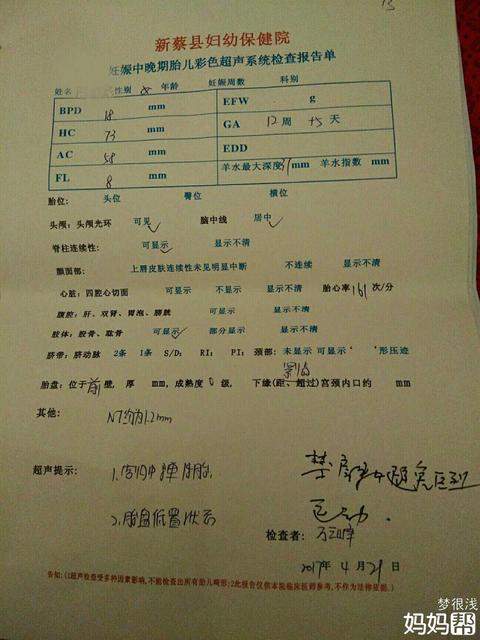 新蔡县妇幼保健院
妊娠中晚期胎儿彩色超声系统检查报告单
姓名 性别 女 年龄 妊娠周数 科别
BPD 18 mm EFW g
HC 73 mm GA 12 周 +5 天
AC 58 mm EDD
FL 8 mm 羊水最大深度 mm 羊水指数 mm
胎位: 头位 臀位 横位
头颅: 头颅光环 可见✓ 脑中线 居中✓
脊柱连续性: 可显示✓ 显示不清
颜面部: 上唇皮肤连续性未见明显中断 不连续 显示不清
心脏: 四腔心切面 可显示 不显示 显示不清 胎心率161次/分
腹腔: 肝、双肾、胃泡、膀胱 可显示 显示不清
肢体: 股骨、肱骨 可显示✓ 部分显示 显示不清
脐带: 脐动脉 2条 1条 S/D: RI: PI: 颈部: 未显示 可显示' '形压迹
胎盘: 位于前壁, 厚 mm, 成熟度0级, 下缘(距、超过)宫颈内口约 mm
其他: NT约为1.2mm
超声提示: 1.宫内中孕
2.胎盘低置状态
检查者:
2017年4月21日
告知: (1超声检查受多种因素影响,不能检查出所有胎儿畸形;2此报告仅供本院临床医师参考,不作为法律依据.)
梦很浅
妈妈帮